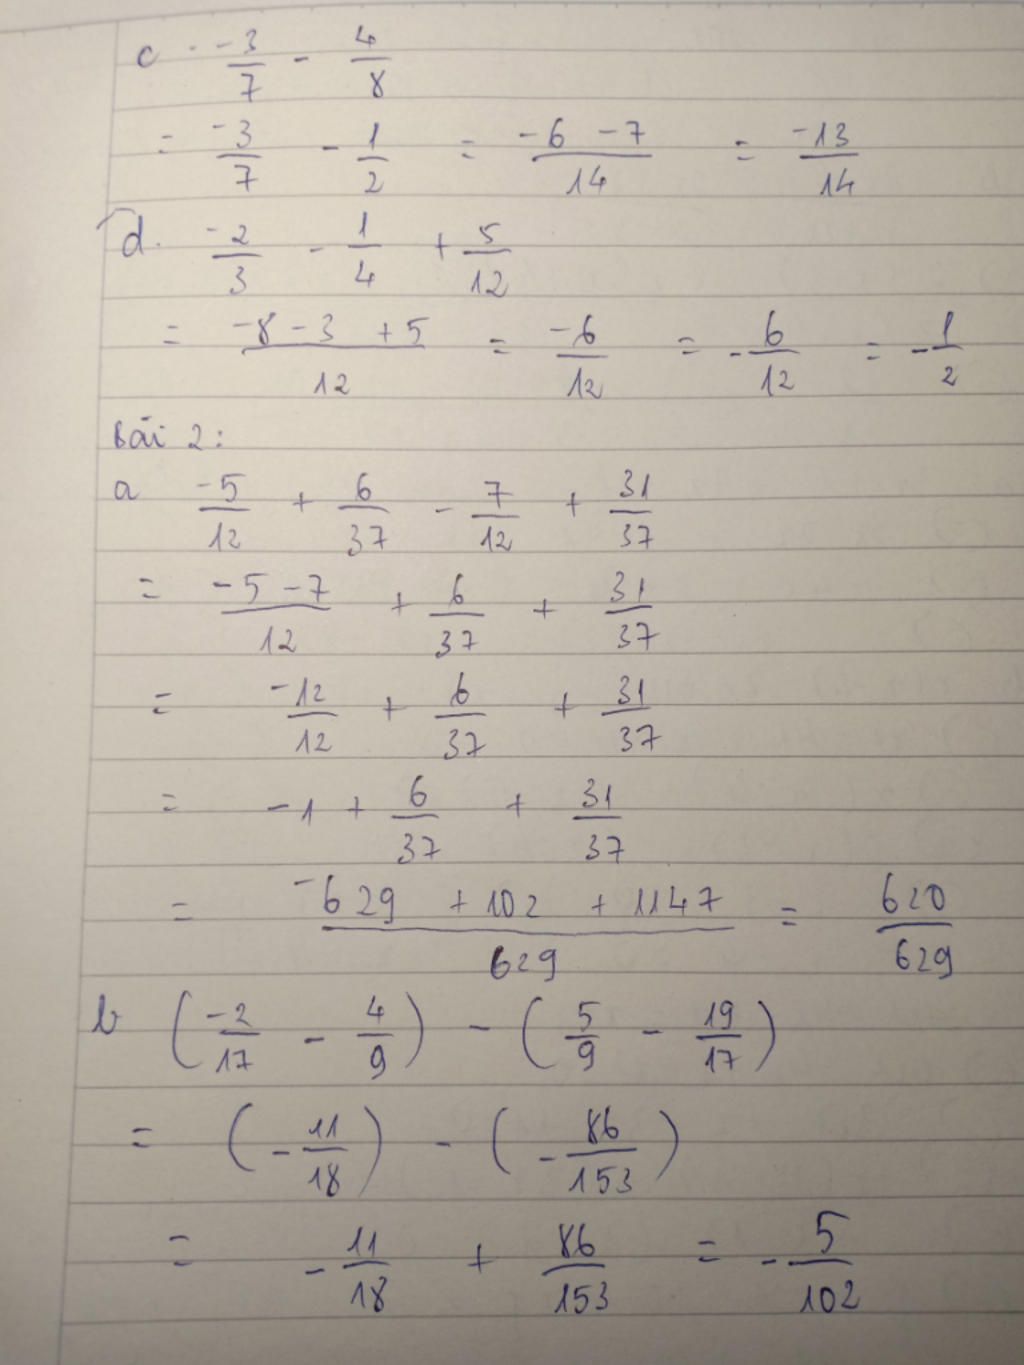 c. -3/7 - 4/8
= -3/7 - 1/2 = -6 -7/14 = -13/14
d. -2/3 - 1/4 + 5/12
= -8 - 3 + 5/12 = -6/12 = -6/12 = -1/2
Bài 2:
a -5/12 + 6/37 - 7/12 + 31/37
= -5 - 7/12 + 6/37 + 31/37
= -12/12 + 6/37 + 31/37
= -1 + 6/37 + 31/37
= -629 + 102 + 1147/629 = 620/629
b (-2/17 - 4/9) - (5/9 - 19/17)
= (-11/18) - (-86/153)
= -11/18 + 86/153 = -5/102